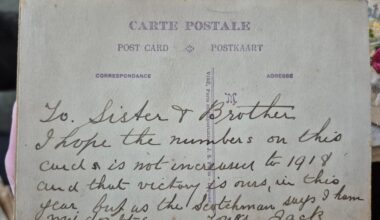 CARTE POSTALE
POST CARD POSTKAART
CORRESPONDANCE ADRESSE
To. Sister & Brother
I hope the numbers on this
card is not increased to 1918
and that victory is ours, in this
year, but as the Scotchman says I hame
Yours Jack